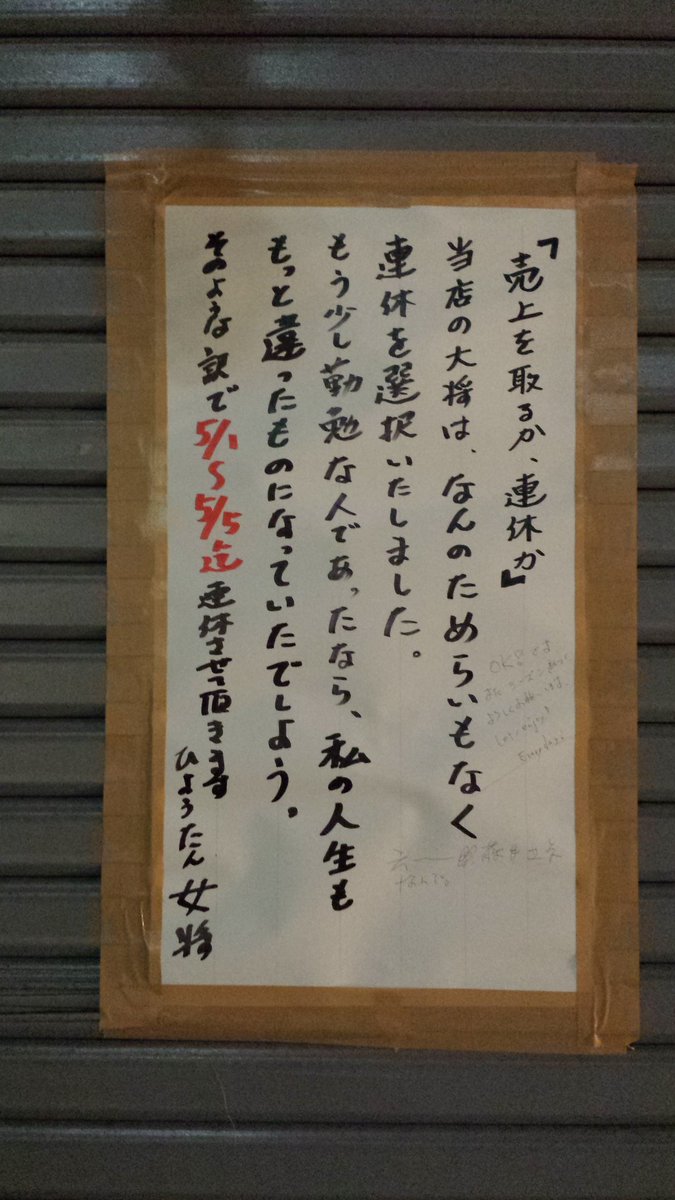 「売上を取るか、連休か」
当店の大将は、なんのためらいもなく
連休を選択いたしました。
もう少し勤勉な人であったなら、私の人生も
もっと違ったものになっていたでしょう。
そのような訳で5/1〜5/5迄連休させて頂きます
ひょうたん女将